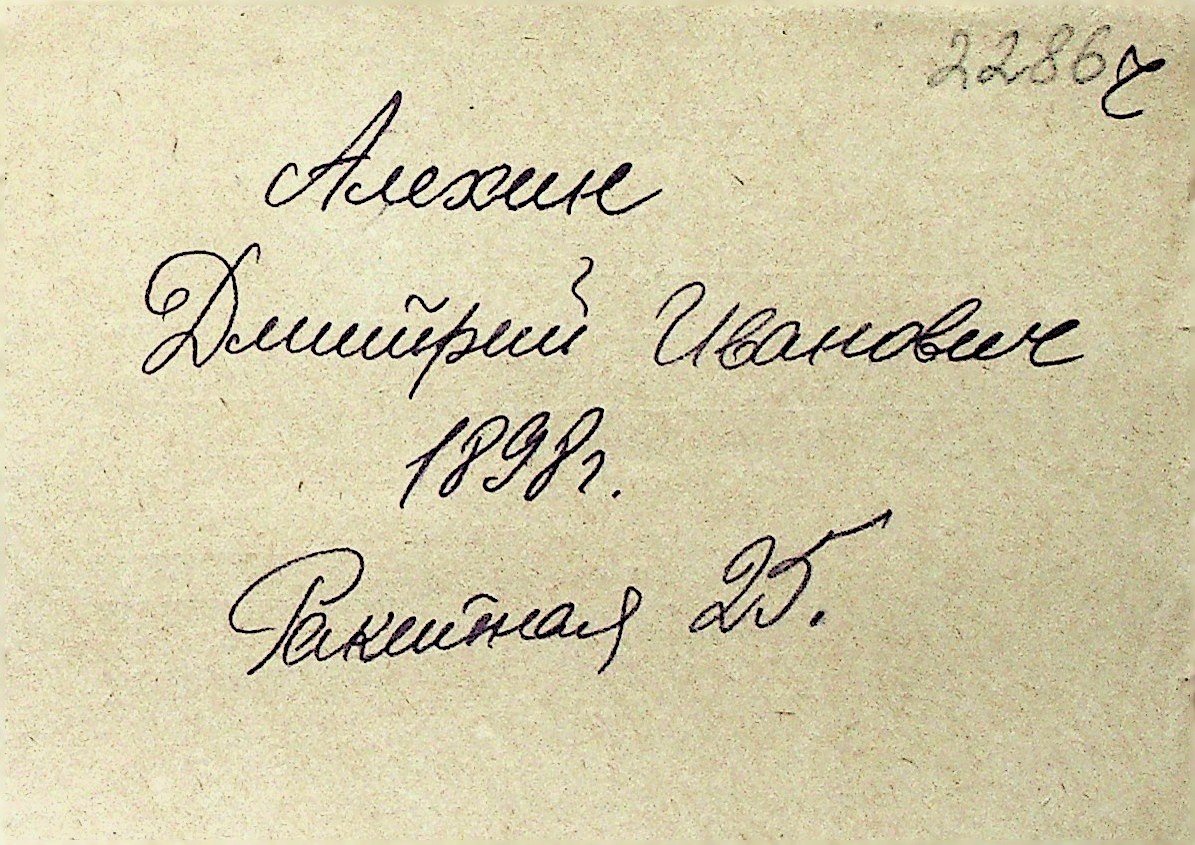 2286
Алехин
Дмитрий Иванович
1898г.
Ракитная 25.